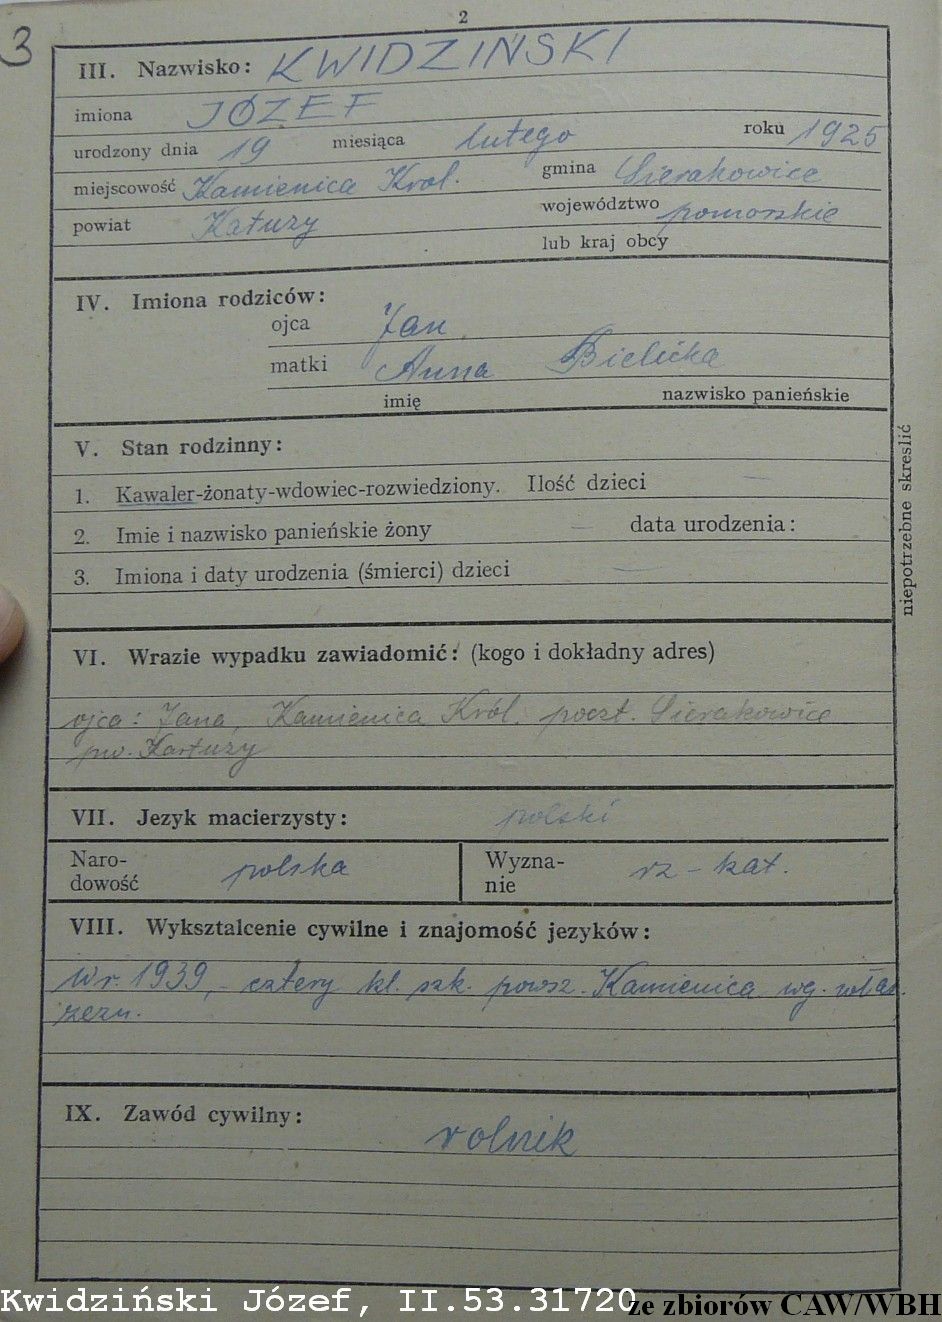 2
3
III. Nazwisko: KWIDZIŃSKI
imiona JÓZEF
urodzony dnia 19 miesiąca lutego roku 1925
miejscowość Kamienica Król. gmina Sierakowice
powiat Katuzy województwo pomorskie
lub kraj obcy
IV. Imiona rodziców:
ojca Jan
matki Anna Bielicka
imię nazwisko panieńskie
V. Stan rodzinny:
1. Kawaler-żonaty-wdowiec-rozwiedziony. Ilość dzieci —
2. Imie i nazwisko panieńskie żony — data urodzenia:
3. Imiona i daty urodzenia (śmierci) dzieci —
niepotrzebne skreslić
VI. Wrazie wypadku zawiadomić: (kogo i dokładny adres)
ojca: Jana, Kamienica Król. poczt. Sierakowice
pow. Kartuzy
VII. Jezyk macierzysty: polski
Naro-
dowość polska
Wyzna-
nie rz-kat.
VIII. Wyksztalcenie cywilne i znajomość jezyków:
W r. 1939,- cztery kl. szk. powsz. Kamienica wg. włas.
zezn.
IX. Zawód cywilny:
rolnik
Kwidziński Józef, II.53.31720
ze zbiorów CAW/WBH